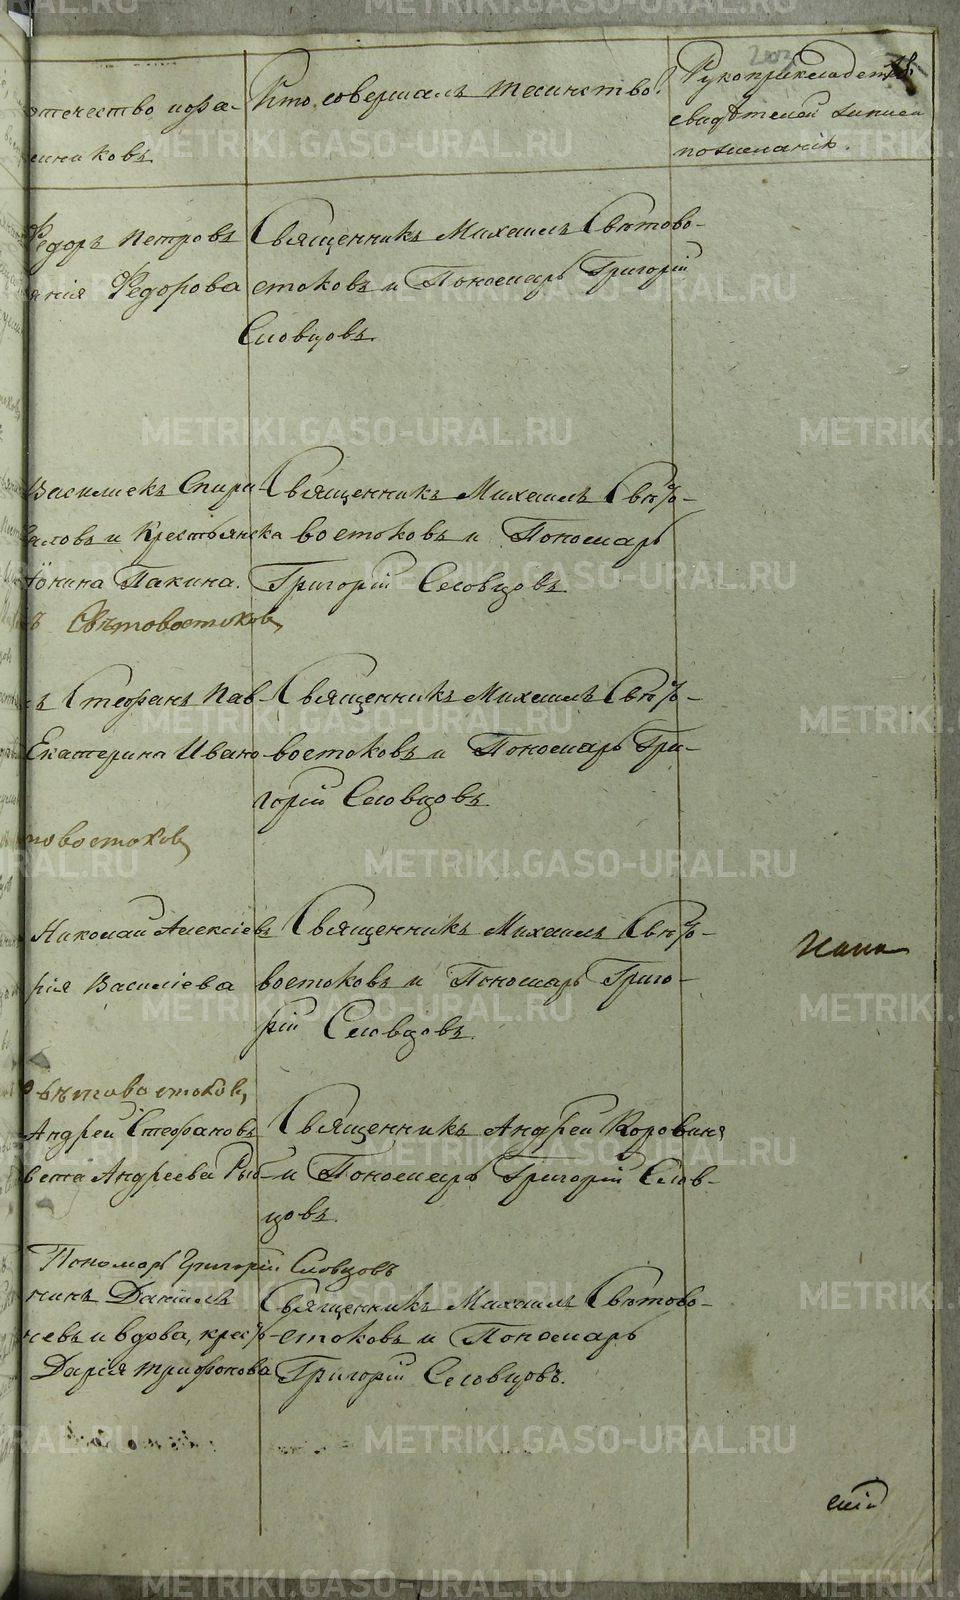 отечество и фа-
Кто совершалъ таинство.
Рукоприкладство
миликовъ
свидѣтелей записи
по желанію.
Федоръ Петровъ
Священникъ Михаилъ Свѣтово-
Федорова
стоковъ и Пономарь Григорій
Словцовъ.
Спири-
Священникъ Михаилъ Свѣто-
и Крестьянска
востоковъ и Пономарь
Пакина.
Григорій Словцовъ.
Свѣтовостоковъ
Стефанъ Пав-
Священникъ Михаилъ Свѣто-
Екатерина Ивано-
востоковъ и Пономарь Гри-
горій Словцовъ.
товостоковъ
Николай Алексіевъ
Священникъ Михаилъ Свѣто-
рія Василіева
востоковъ и Пономарь Григо-
рій Словцовъ.
Свѣтовостоковъ
Андрей Стефановъ
Священникъ Андрей Коровинъ
вета Андреева
и Пономарь Григорій Слов-
цовъ.
Пономарь Григорій Словцовъ
нинъ Даніилъ
Священникъ Михаилъ Свѣтово-
евъ и вдова, крест-
стоковъ и Пономарь
Дарія Трифонова
Григорій Словцовъ.
METRIKI.GASO-URAL.RU